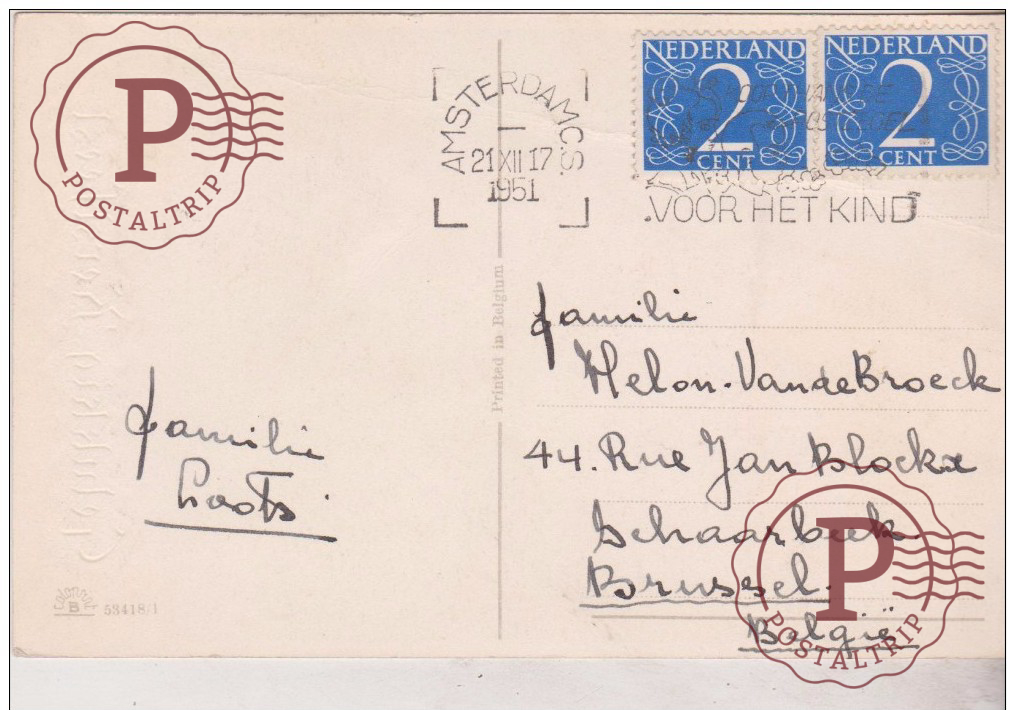 P
POSTALTRIP
AMSTERDAM C.S.
I
21 XII 17
1951
NEDERLAND
2
CENT
NEDERLAND
2
CENT
VOOR HET KIND
Printed in Belgium
familie
Helon-VandeBroeck
44. Rue Jan Blockx
Schaarbeek
Brussel.
België
familie
Loots
Colorprint
B
53418/1
P
POSTALTRIP